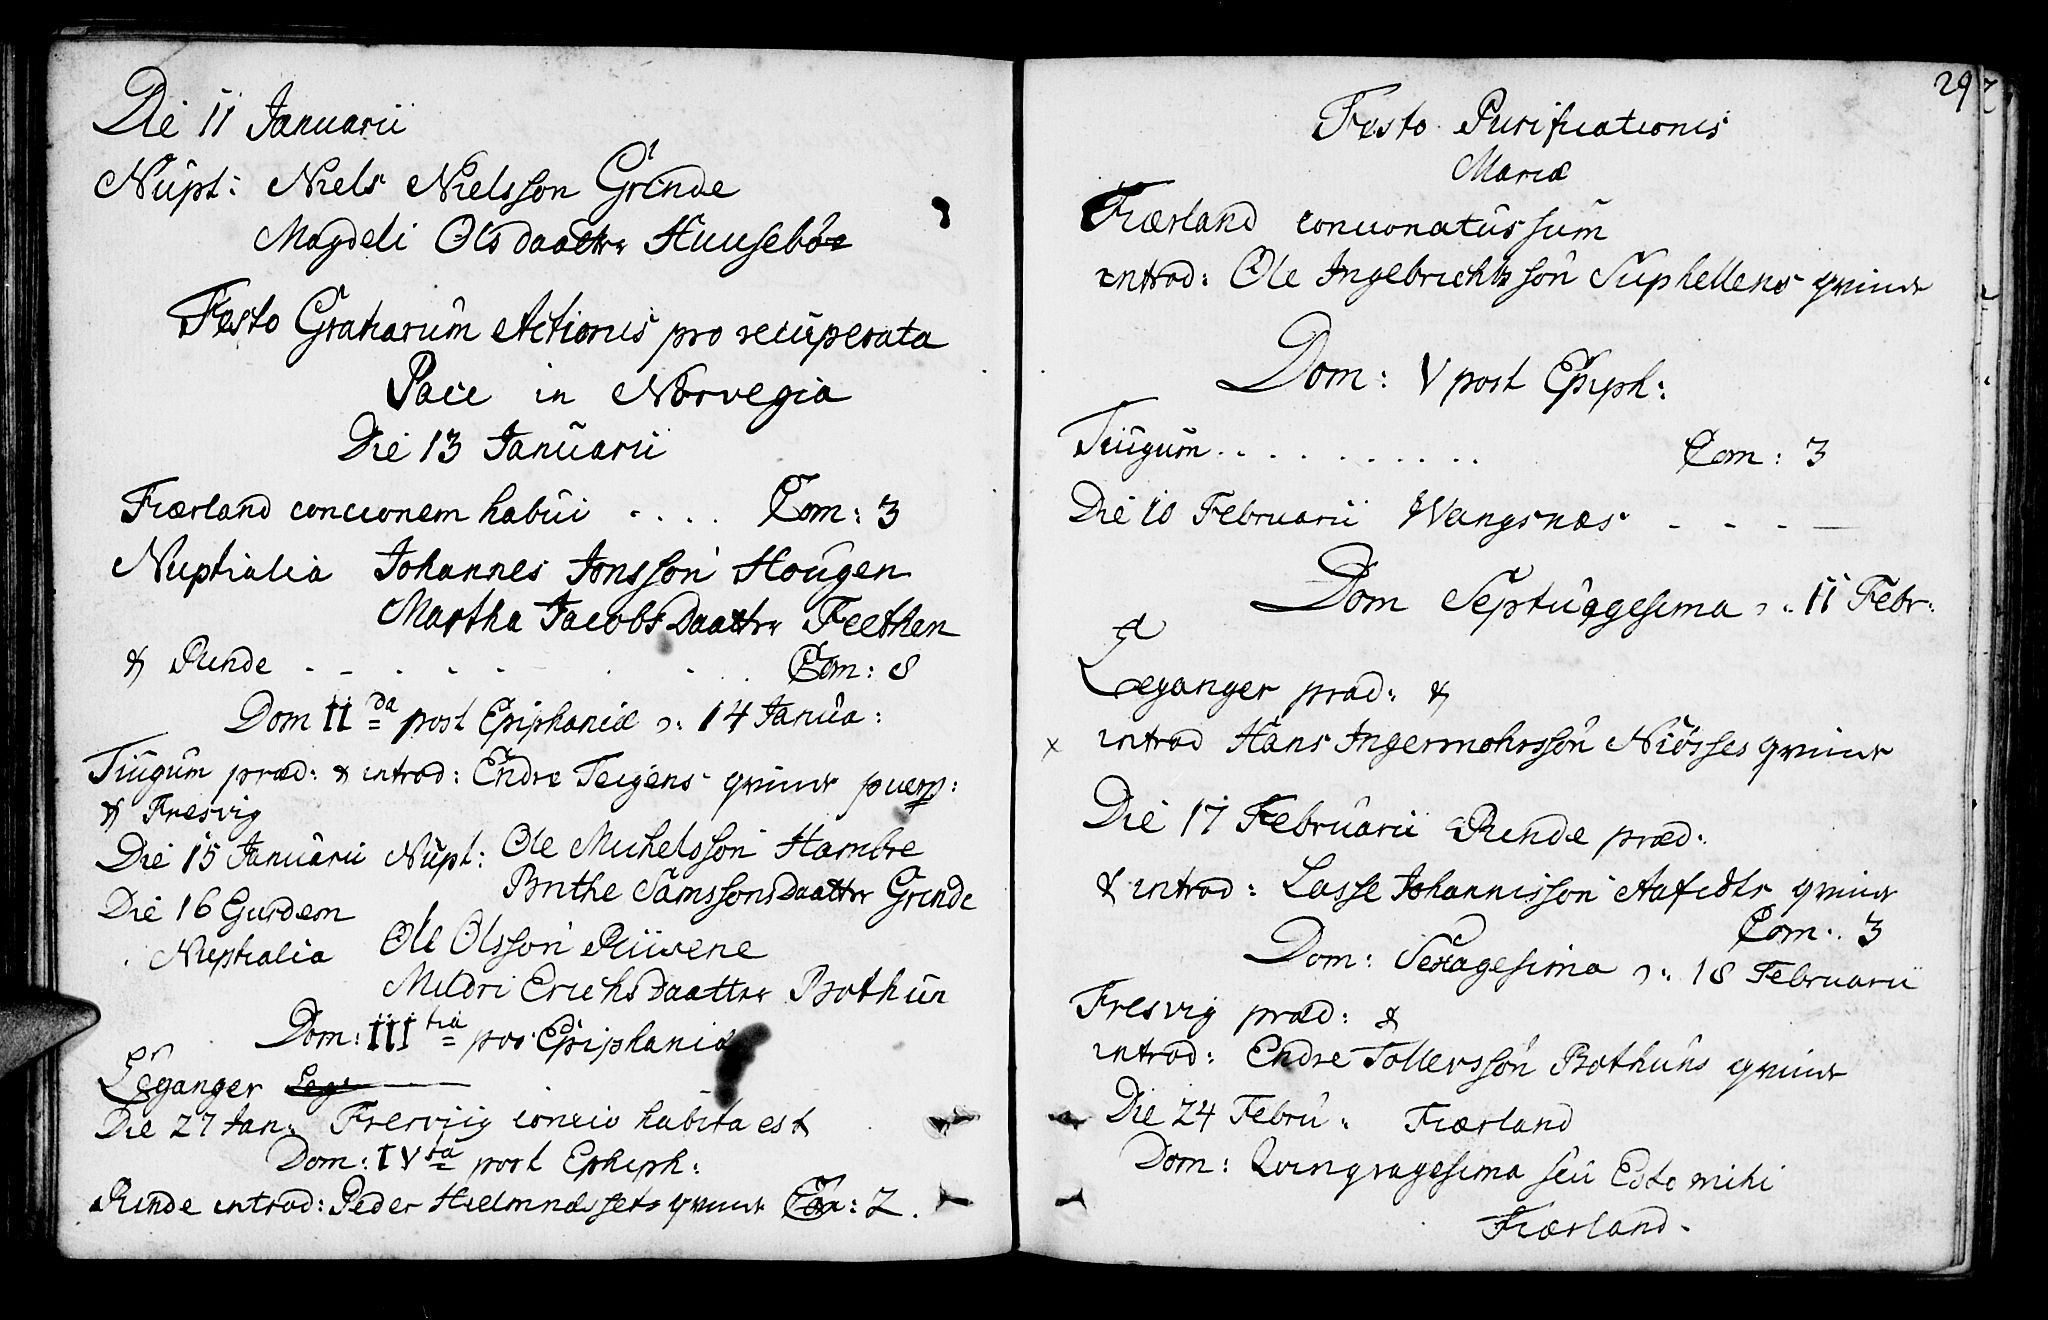 Die 11 Januarii
Nupt: Niels Nielsson Grinde
Magdeli Olsdaatter Huusebøe
Festo Gratiarum Actionis pro recuperata
Pace in Norvegia
Die 13 Januarii
Fiærland concionem habui .... Com: 3
Nuptialia Johannes Jonsson Hougen
Martha Jacobsdaatter Feethen
& Rinde - - - - - . - . . Com: 8
Dom II da post Epiphaniæ ɔ: 14 Janua:
Tiugum præd: & introd: Endre Teigens qvinde puerp:
& Fresvig
Die 15 Januarii Nupt: Ole Michelsson Hambre
Brithe Samssonsdaatter Grinde
Die 16 Gurdem
Nuptialia Ole Olsson Riivene
Mildri Erichsdaatter Bothun
Dom: III tia pos Epiphaniæ
Leganger Leg
Die 27 Jan: Fresviig concio habita est
Dom: IV ta post Ephiph:
Rinde introd: Peder Hielmnæssets qvinde Com: 2.
29
Festo Purificationis
Mariæ
Fiærland concionatus sum
introd: Ole Ingebrichtssøn Suphellens qvinde
Dom: V post Epiph:
Tiugum . . . . . . . . . . Com: 3
Die 10 Februarii Wangsnæs - - - -
Dom Septuagesima ɔ: 11 Febr:
Leganger præd: &
x introd Hans Ingermohrssøn Niøsses qvinde
Die 17 Februarii Rinde præd:
& introd: Lasse Johannisson Aafedts qvinde
Com: 3
Dom: Sexagesima ɔ: 18 Februarii
Fresvig præd: &
introd: Endre Tollerssøn Bothuns qvinde
Die 24 Febru: Fiærland
Dom: Qvinqvagesima seu Esto mihi
Fiærland.